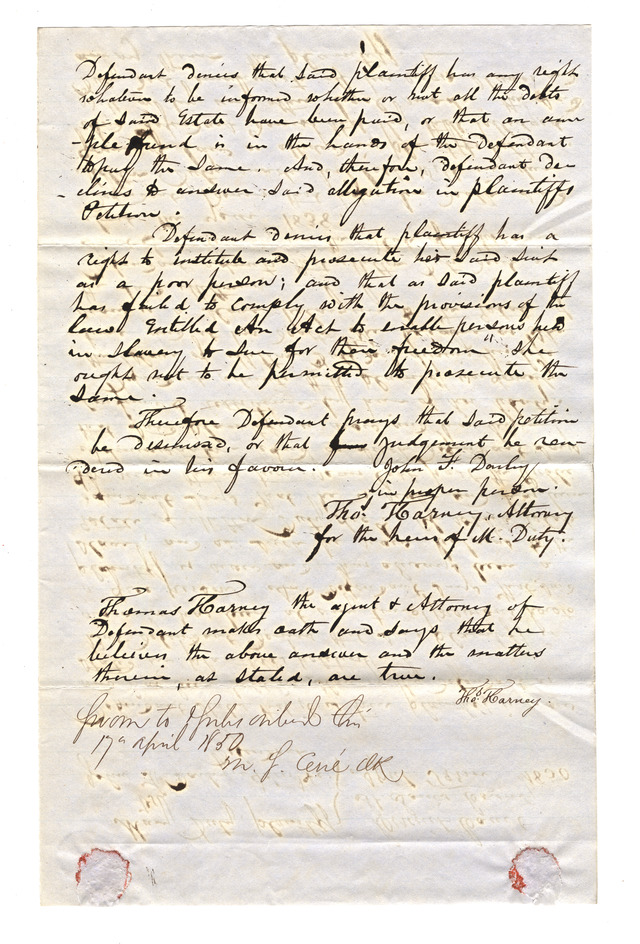 Defendant denies that said plaintiff has any right
whatever to be informed whether or not all the debts
of said Estate have been paid, or that an am-
-ple fund is in the hands of the defendant
to pay the same. And, therefore, defendant de-
-clines to answer said allegation in plaintiffs
Petition.
Defendant denies that plaintiff has a
right to institute and prosecute her said suit
as a poor person; and that as said plaintiff
has failed to comply with the provisions of the
law Entitled An Act to enable persons held
in slavery to sue for their freedom" she
ought not to be permitted to prosecute the
same.
Therefore Defendant prays that said petition
be dismissed, or that judgement be ren-
-dered in his favour. John F. Darby
in proper person.
Tho. Harney, Attorney
for the heirs of M. Duty.
Thomas Harney the agent & Attorney of
Defendant makes oath and says that he
believes the above answer and the matters
therein, as stated, are true.
Tho. Harney.
Sworn to & subscribed this
17th april 1850
m. J. Cerré clk